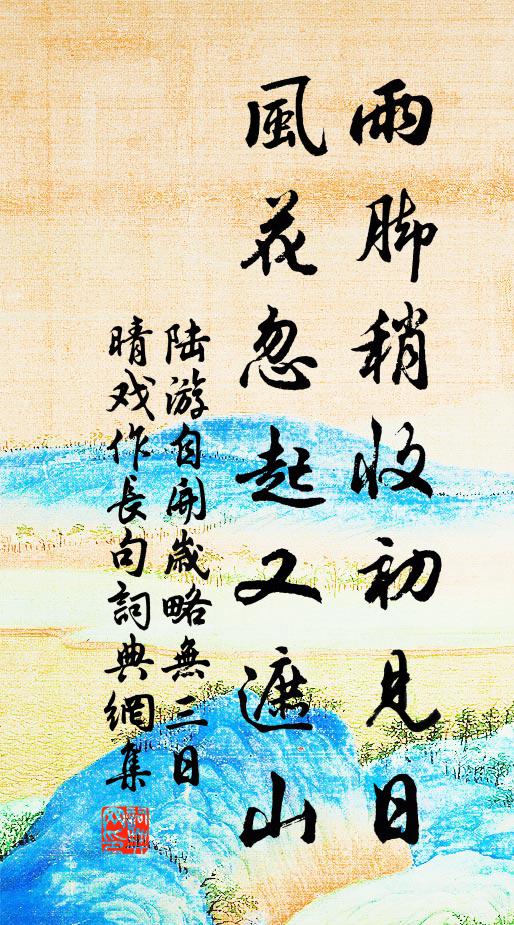 雨脚稍收初见日
風花忽起又遮山
陆游自開歲略無三日
晴戏作長句詞典網集